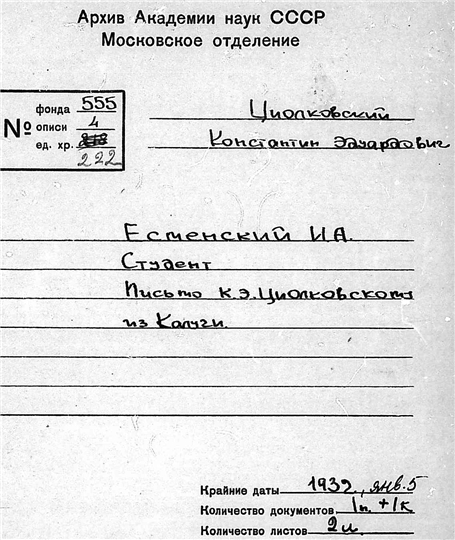 Архив Академии наук СССР
Московское отделение
№
фонда 555
описи 4
ед. хр.
222
Циолковский
Константин Эдуардович
Есменский И.А.
Студент
Письмо К.Э.Циолковского
из Калуги.
Крайние даты 1932, янв. 5
Количество документов 1п. + 1к
Количество листов 2л.